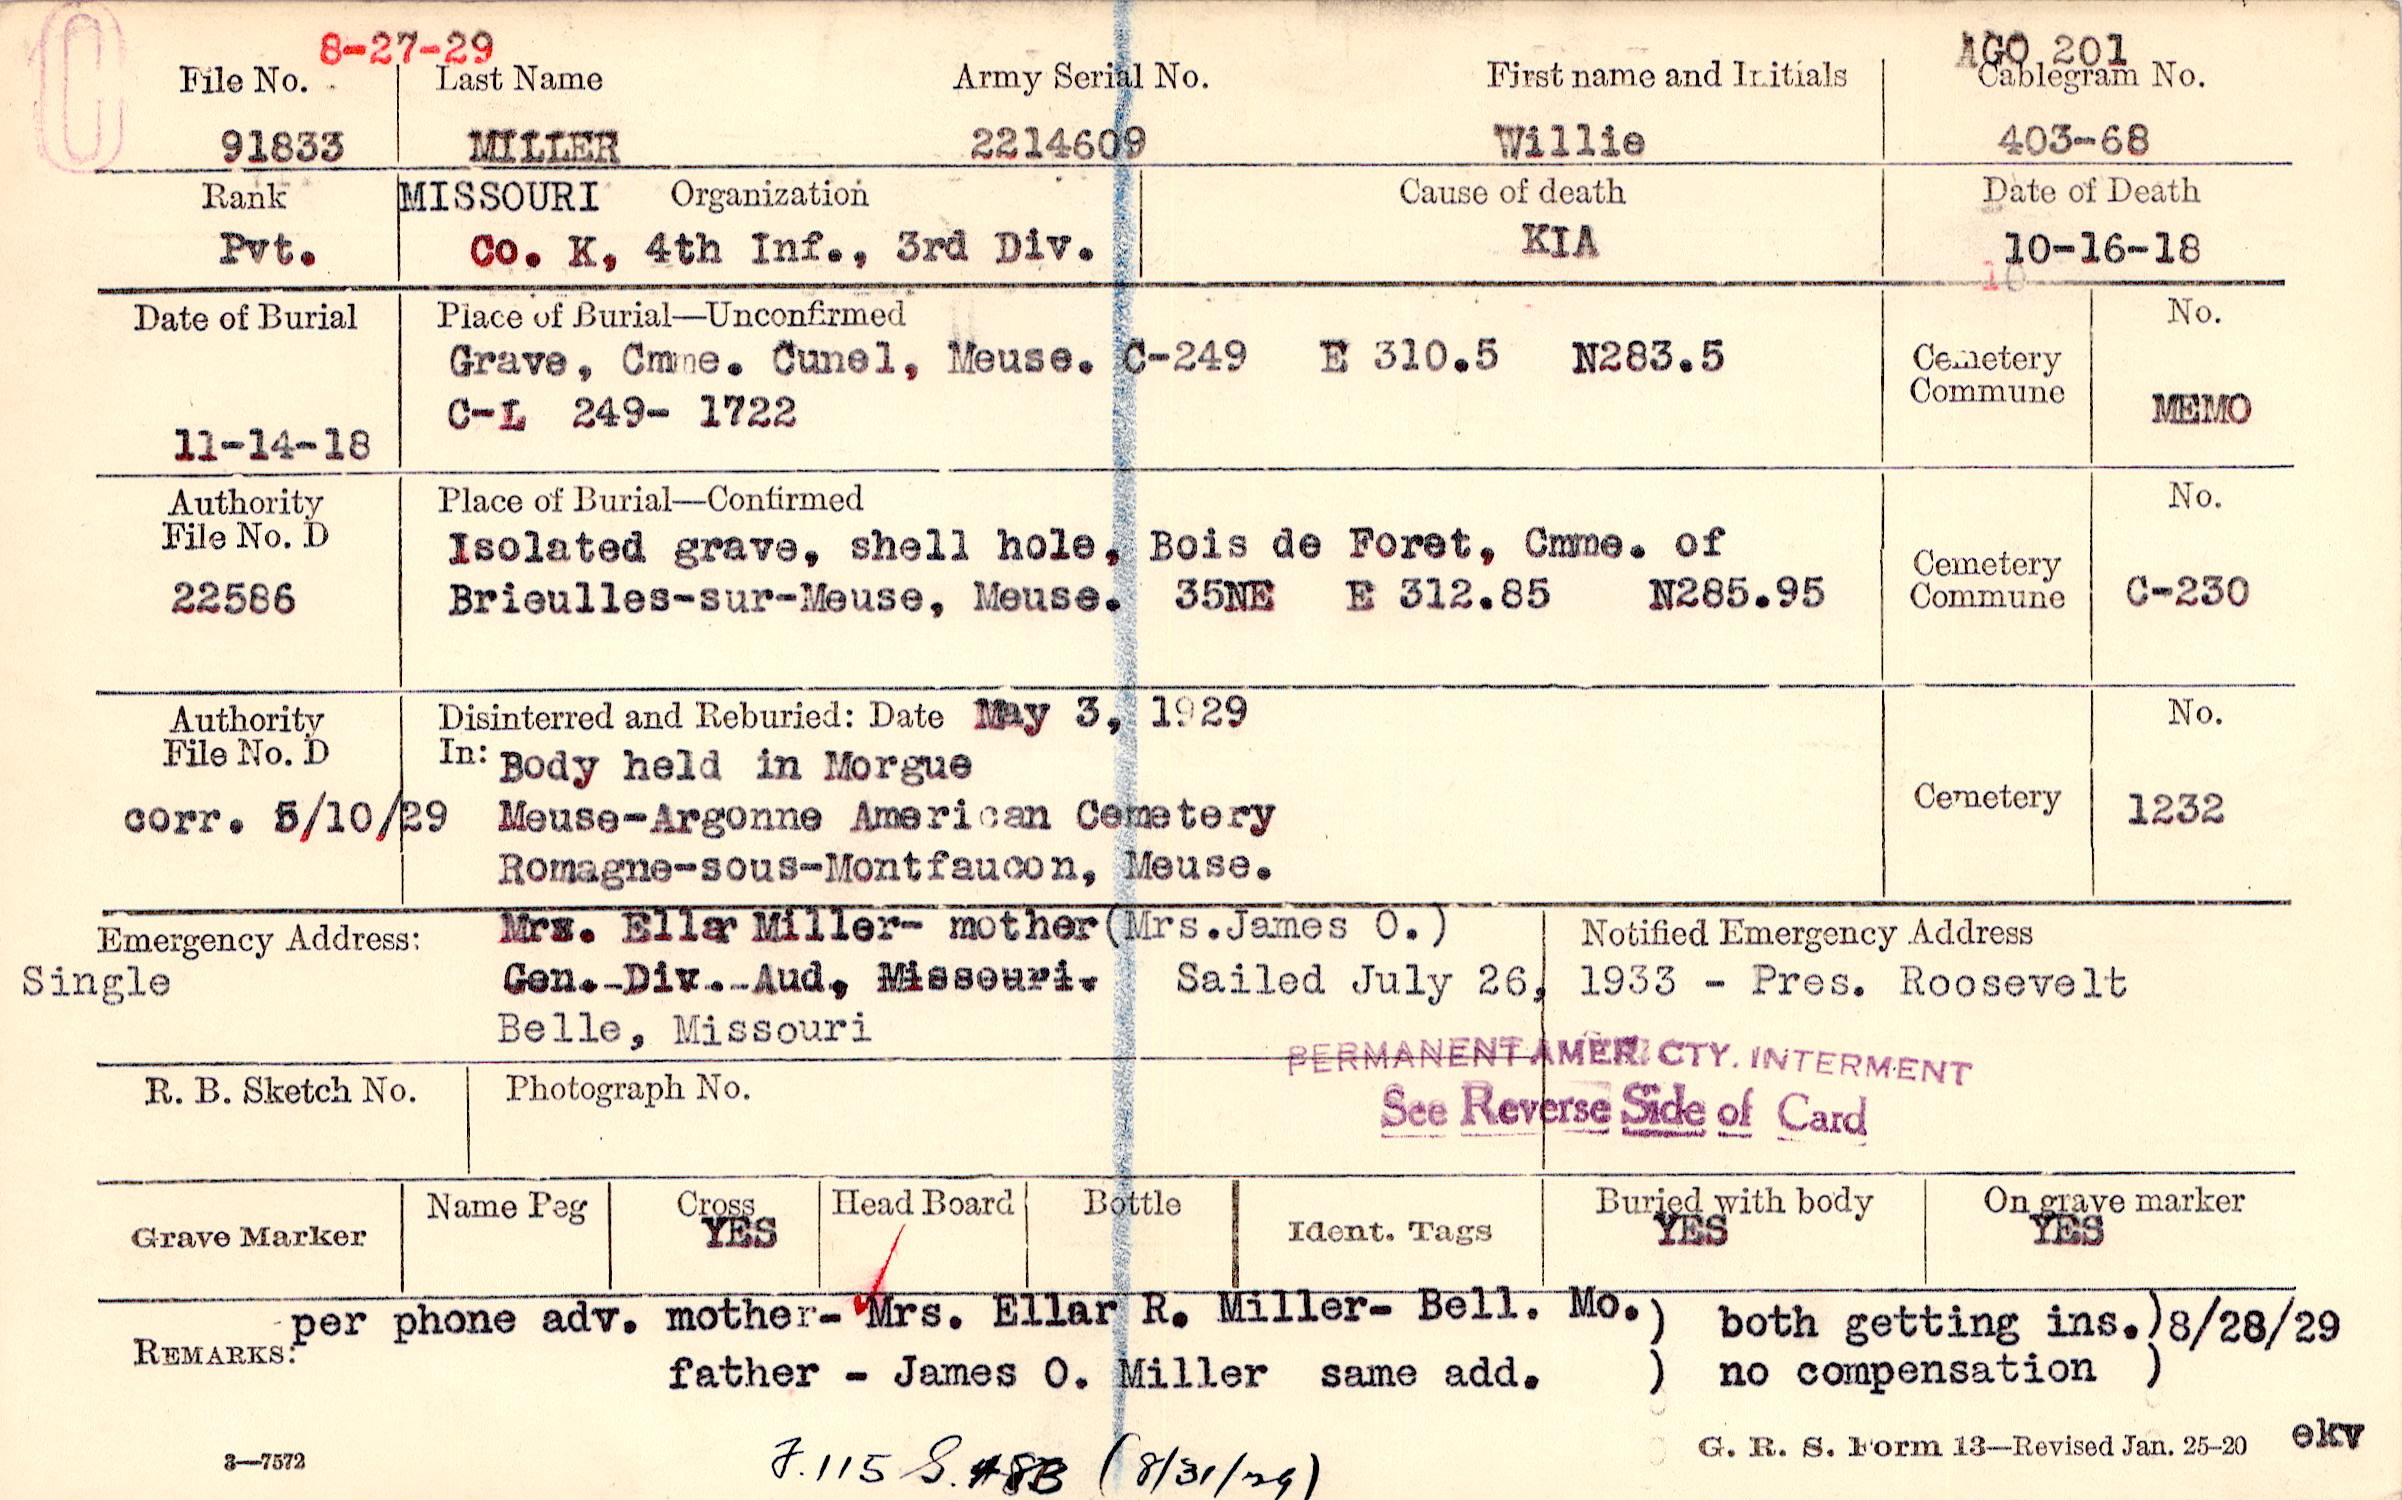 8-27-29 AGO 201
File No. Last Name Army Serial No. First name and Initials Cablegram No.
91833 MILLER 2214609 Willie 403-68
Rank MISSOURI Organization Cause of death Date of Death
Pvt. Co. K, 4th Inf., 3rd Div. KIA 10-16-18
10
Date of Burial Place of Burial—Unconfirmed No.
Grave, Cmme. Cunel, Meuse. C-249 E 310.5 N283.5 Cemetery
Commune
C-L 249- 1722 MEMO
11-14-18
Authority Place of Burial—Confirmed No.
File No. D Isolated grave, shell hole, Bois de Foret, Cmme. of Cemetery
22586 Brieulles-sur-Meuse, Meuse. 35NE E 312.85 N285.95 Commune C-230
Authority Disinterred and Reburied: Date May 3, 1929 No.
File No. D In: Body held in Morgue
corr. 5/10/29 Meuse-Argonne American Cemetery Cemetery 1232
Romagne-sous-Montfaucon, Meuse.
Emergency Address: Mrs. Ellar Miller- mother (Mrs.James O.) Notified Emergency Address
Single Gen. Div. Aud, Missouri. Sailed July 26, 1933 - Pres. Roosevelt
Belle, Missouri
PERMANENT AMER. CTY. INTERMENT
R. B. Sketch No. Photograph No. See Reverse Side of Card
Grave Marker Name Peg Cross Head Board Bottle Ident. Tags Buried with body On grave marker
YES YES YES
per phone adv. mother- Mrs. Ellar R. Miller- Bell. Mo.) both getting ins.)8/28/29
REMARKS: father - James O. Miller same add. ) no compensation )
3—7572 G. R. S. Form 13—Revised Jan. 25-20 ekv
(8/31/29)